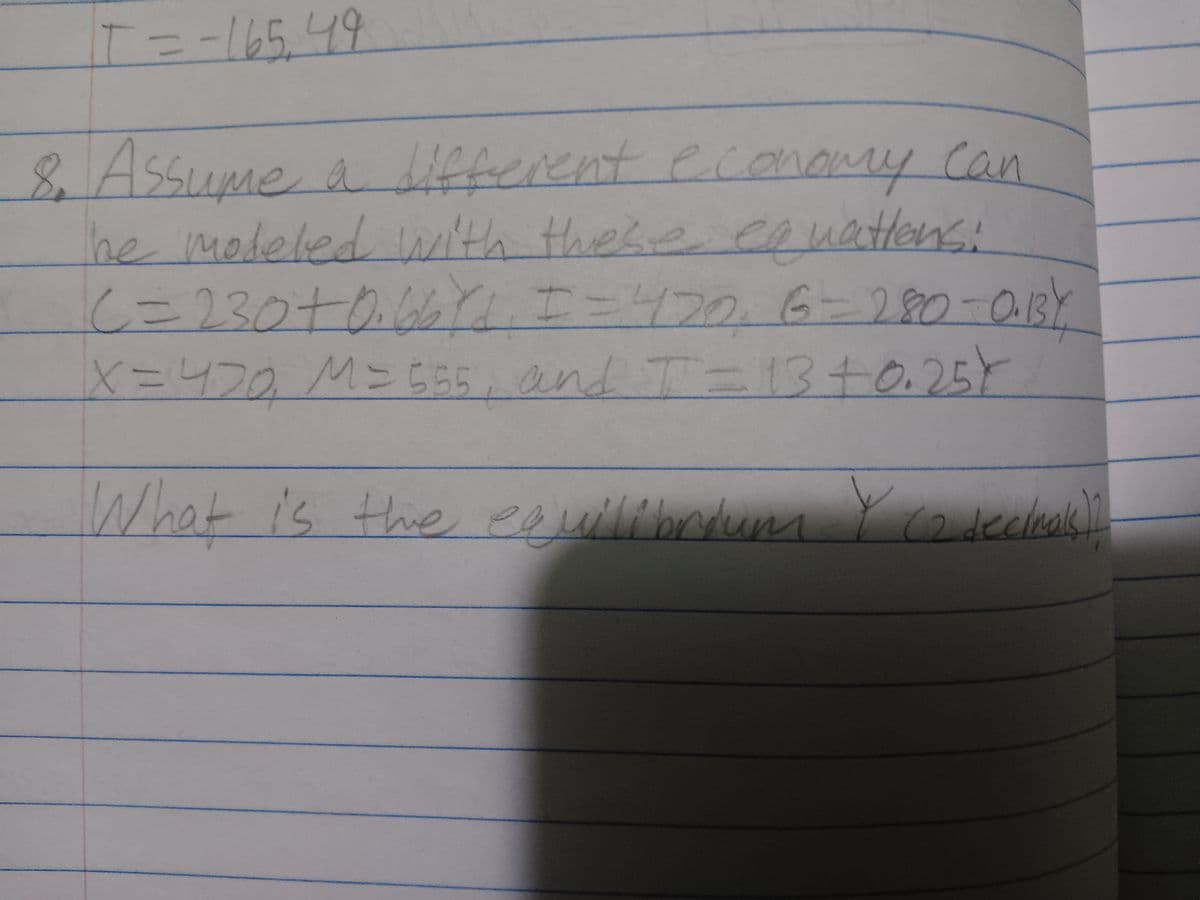 T = -165.49
8. Assume a different economy can
be modeled with these equations:
C = 230 + 0.66Yd, I = 470, G = 280 - 0.13Y,
X = 470, M = 555, and T = 13 + 0.25Y
What is the equilibrium Y (2 decimals)?